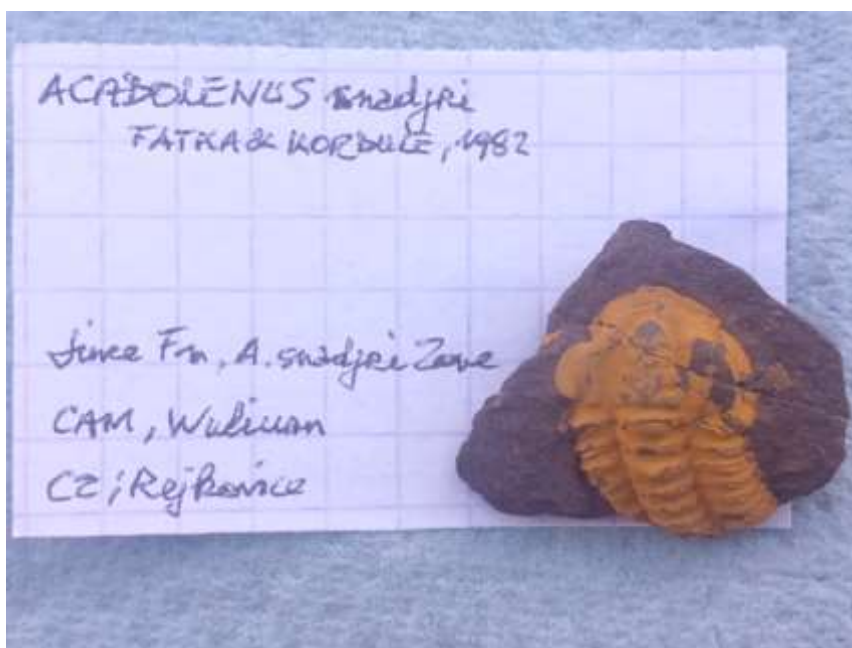 ACADOLENUS snadjri
FATKA & KORDULE, 1982
Jince Fm, A. snadjri Zone
CAM, Wuliuan
CZ; Rejkovice